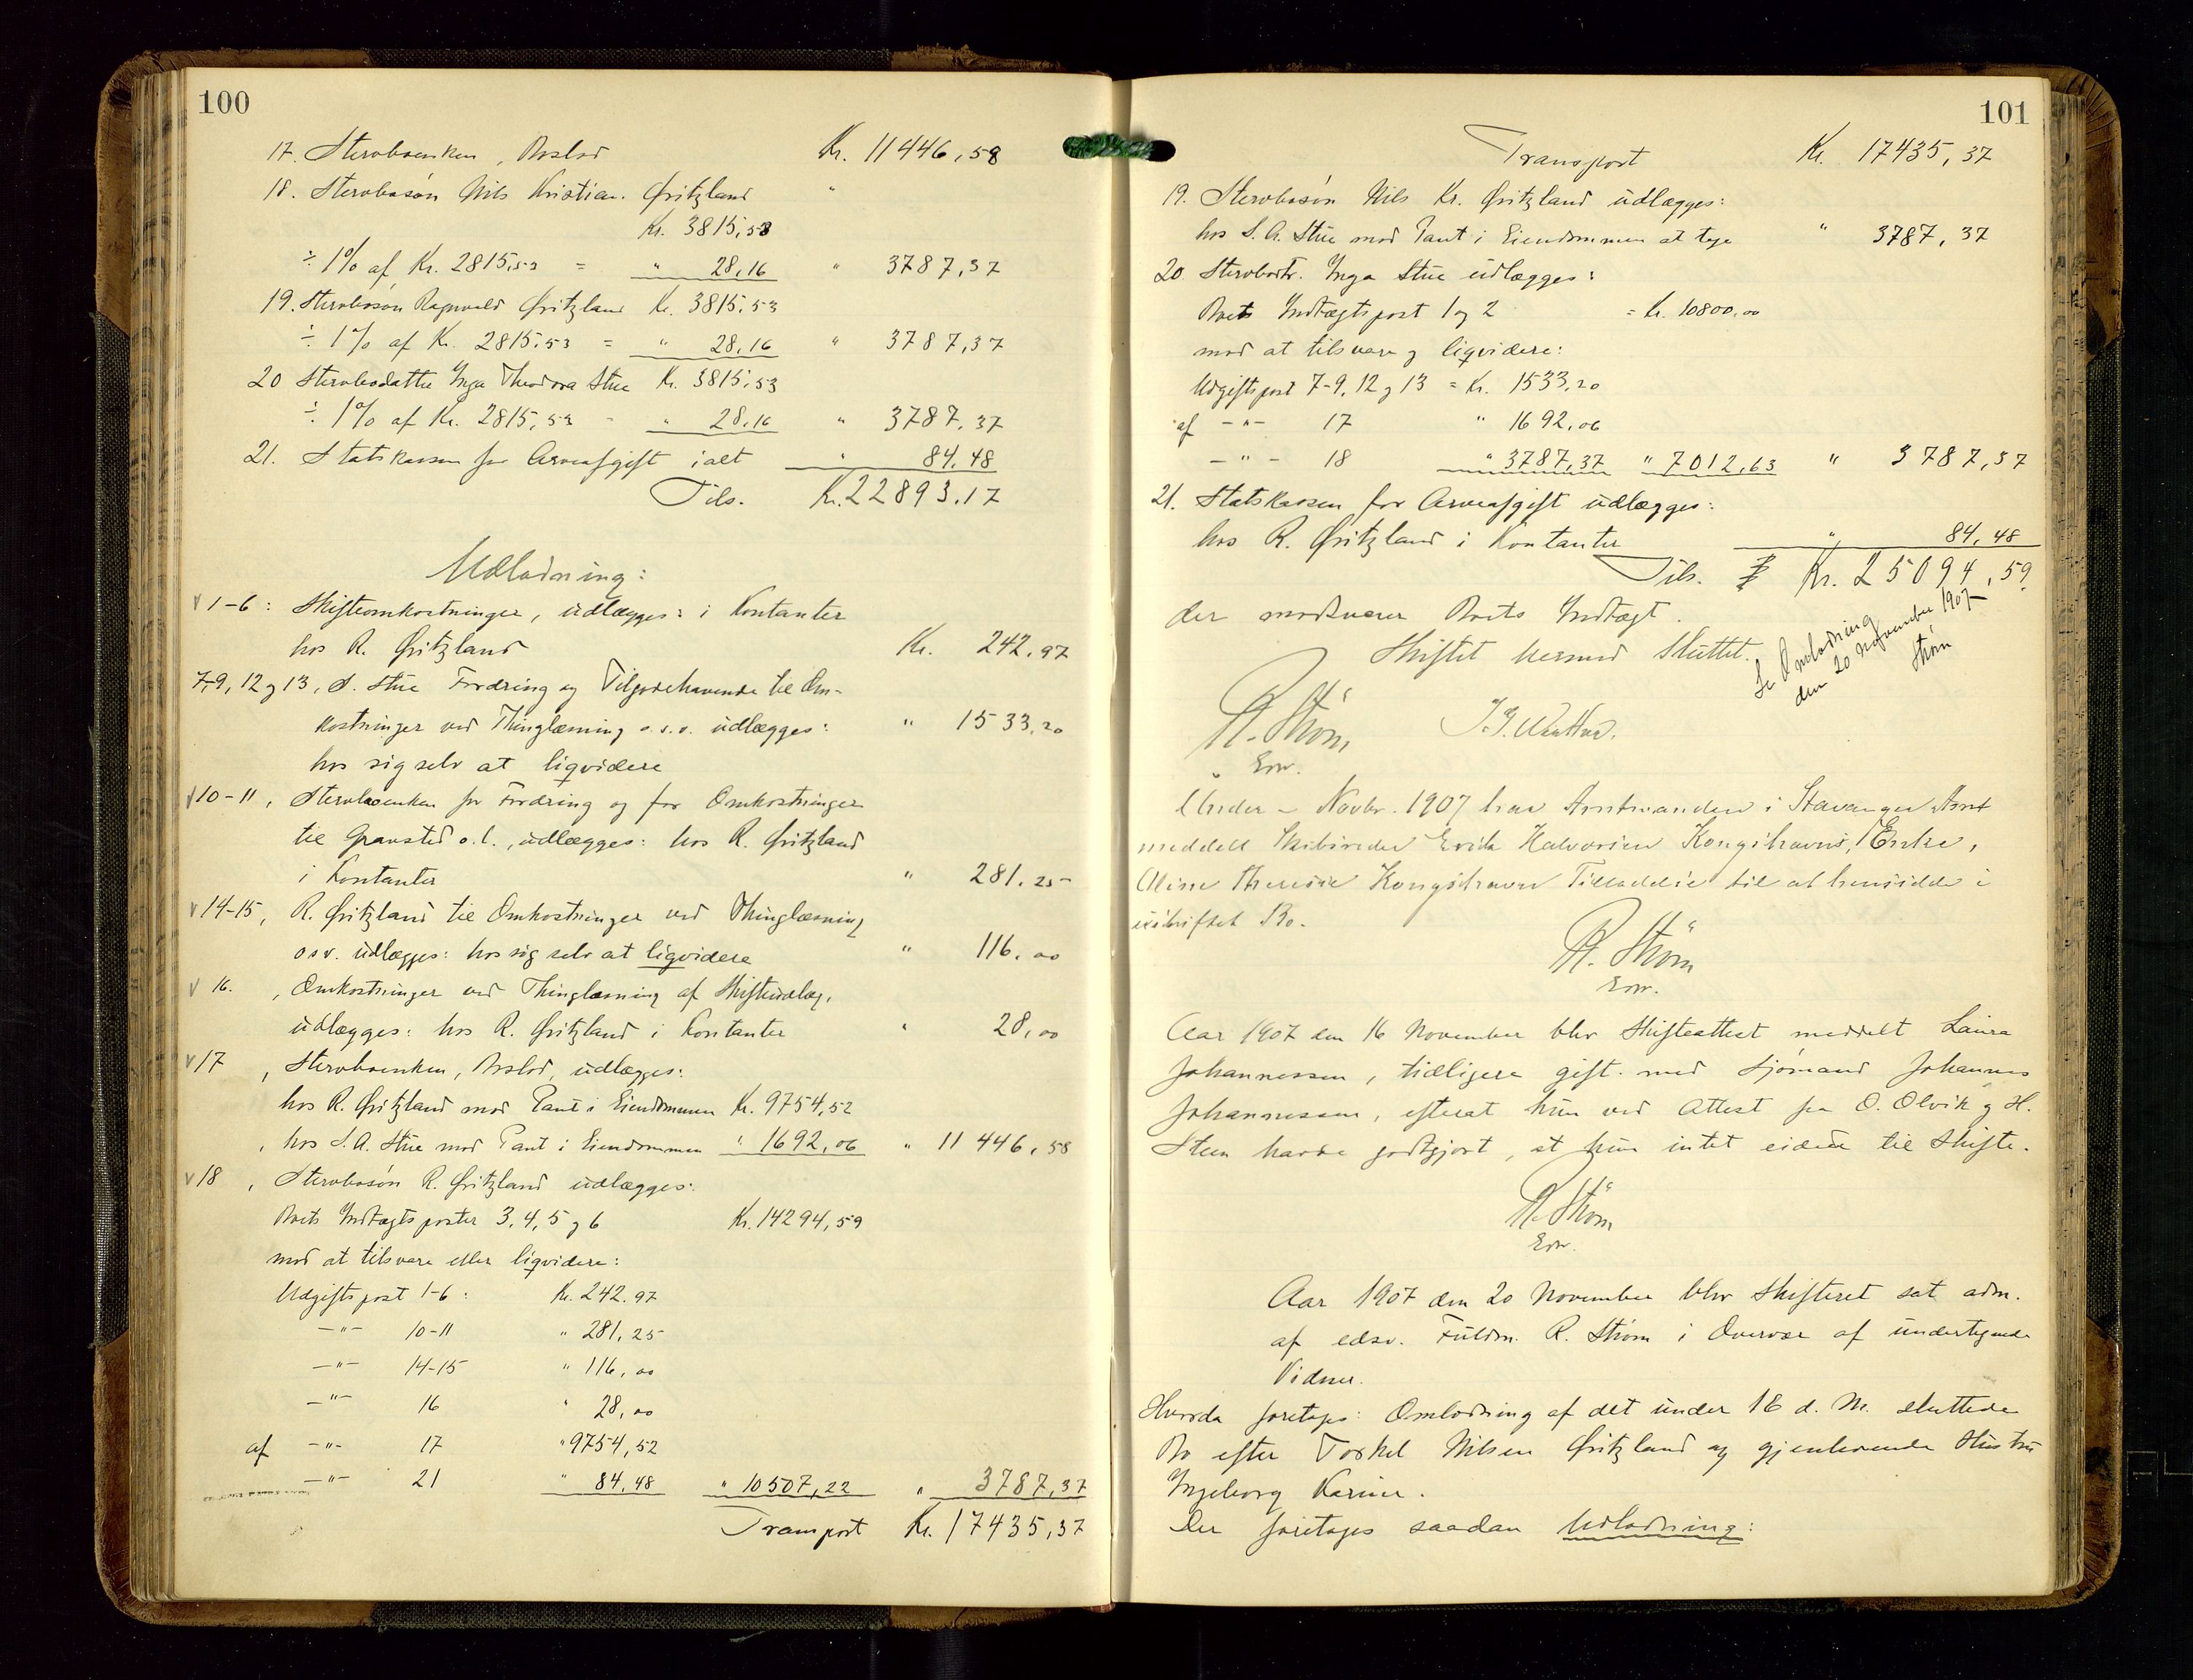 100
17. Sterboenken, Boslod Kr. 11446,58
18. Sterbosøn Nils Kristian Øritzland "
Kr. 3815,53
÷ 1% af Kr. 2815,53 = " 28,16 " 3787,37
19. Sterbosøn Ragnvald Øritzland Kr. 3815,53
÷ 1% af Kr. 2815,53 = " 28,16 " 3787,37
20 Sterbodatter Inga Theodora Stue Kr. 3815,53
÷ 1% af Kr. 2815,53 - " 28,16 " 3787,37
21. Statskassen for Arveafgift ialt " 84,48
Tils. Kr. 22893,17
Udlodning:
1-6: Skifteomkostninger, udlægges: i Kontanter
hos R. Øritzland Kr. 242,97
7-9, 12 og 13, S. Stue Fordring og Tilgodehavende til Om-
kostninger ved Thinglæsning o.s.v. udlægges: " 1533,20
hos sig selv at liqvidere
10-11, Sterboenken for Fordring og for Omkostninger
til Gravsted o.l., udlægges: hos R. Øritzland
i Kontanter " 281,25
14-15, R. Øritzland til Omkostninger ved Thinglæsning
osv. udlægges: hos sig selv at liqvidere " 116,00
16. , Omkostninger ved Thinglæsning af Skifteudlæg,
udlægges: hos R. Øritzland i Kontanter " 28,00
17 , Sterboenken, Boslod, udlægges:
hos R. Øritzland mod Pant i Eiendommen Kr. 9754,52
, hos S. A. Stue mod Pant i Eiendommen " 1692,06 " 11446,58
18 , Sterbosøn R. Øritzland udlægges:
Boets Indtægtsposter 3, 4, 5 og 6 Kr. 14294,59
mod at tilsvare eller liqvidere:
Udgiftspost 1-6: Kr. 242,97
-"- 10-11 " 281,25
-"- 14-15 " 116,00
-"- 16 " 28,00
af -"- 17 " 9754,52
-"- 21 " 84,48 " 10507,22 " 3787,37
Transport Kr. 17435,37
101
Transport Kr. 17435,37
19. Sterbosøn Nils Kr. Øritzland udlægges:
hos S. A. Stue mod Pant i Eiendommen at tage " 3787,37
20. Sterbodtr. Inga Stue udlægges:
Boets Indtægtspost 1 og 2 = Kr. 10800,00
mod at tilsvare og liqvidere:
Udgiftspost 7-9, 12 og 13 = Kr. 1533,20
af -"- 17 " 1692,06
-"- 18 " 3787,37 " 7012,63 " 3787,37
21. Statskassen for Arveafgift udlægges:
hos R. Øritzland i Kontanter " 84,48
Tils. Kr. 25094,59
der modsvarer Boets Indtægt.
Skiftet hermed Sluttet.
Se Omlodning
den 20 November 1907
Strøm
R. Strøm
Edsv.
Under - Novbr. 1907 har Amtmanden i Stavanger Amt
meddelt Skibsreder Erik Halvorsen Kongshavns Enke,
Oline Theresie Kongshavn Tilladelse til at hensidde i
uskiftet Bo.
R. Strøm
Edsv.
Aar 1907 den 16 November blev Skifteattest meddelt Laura
Johannessen, tidligere gift med Sjømand Johannes
Johannessen, efterat hun ved Attest fra O. Olvik og H.
Steen havde godtgjort, at hun intet eiede til Skifte.
R. Strøm
Edsv.
Aar 1907 den 20 November blev Skifteret sat adm.
af edsv. Fuldm. R. Strøm i Overvær af undertegnede
Vidner.
Hvorda foretoges: Omlodning af det under 18 d. M. sluttede
Bo efter Torkel Nilsen Øritzland og gjenlevende Hustru
Ingeborg Karine.
Der foretoges saadan Udlodning: